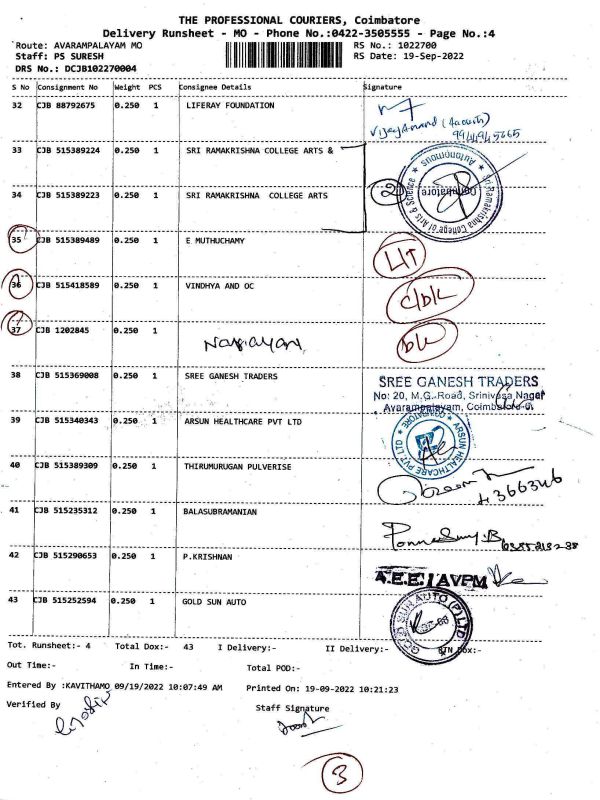 THE PROFESSIONAL COURIERS, Coimbatore
Delivery Runsheet - MO - Phone No.:0422-3505555 - Page No.:4
Route: AVARAMPALAYAM MO RS No.: 1022700
Staff: PS SURESH RS Date: 19-Sep-2022
DRS No.: DCJB102270004
S No Consignment No Weight PCS Consignee Details Signature
32 CJB 88792675 0.250 1 LIFERAY FOUNDATION
VijayAnand
33 CJB 515389224 0.250 1 SRI RAMAKRISHNA COLLEGE ARTS &
Sri Ramakrishna College of Arts & Science * Autonomous * Coimbatore
2
34 CJB 515389223 0.250 1 SRI RAMAKRISHNA COLLEGE ARTS
35 CJB 515389489 0.250 1 E MUTHUCHAMY
36 CJB 515418589 0.250 1 VINDHYA AND OC
37 CJB 1202845 0.250 1
38 CJB 515369008 0.250 1 SREE GANESH TRADERS
SREE GANESH TRADERS
No: 20, M.G. Road, Srinivasa Nagar
Avarampalayam, Coimbatore-6.
39 CJB 515340343 0.250 1 ARSUN HEALTHCARE PVT LTD
ARSUN HEALTHCARE PVT LTD * COIMBATORE *
40 CJB 515389309 0.250 1 THIRUMURUGAN PULVERISE
41 CJB 515235312 0.250 1 BALASUBRAMANIAN
42 CJB 515290653 0.250 1 P.KRISHNAN
A.E.E./AVPM
43 CJB 515252594 0.250 1 GOLD SUN AUTO
GOLD SUN AUTO (P) LTD
Tot. Runsheet:- 4 Total Dox:- 43 I Delivery:- II Delivery:- RTN Dox:-
Out Time:- In Time:- Total POD:-
Entered By :KAVITHAMO 09/19/2022 10:07:49 AM Printed On: 19-09-2022 10:21:23
Verified By Staff Signature
3